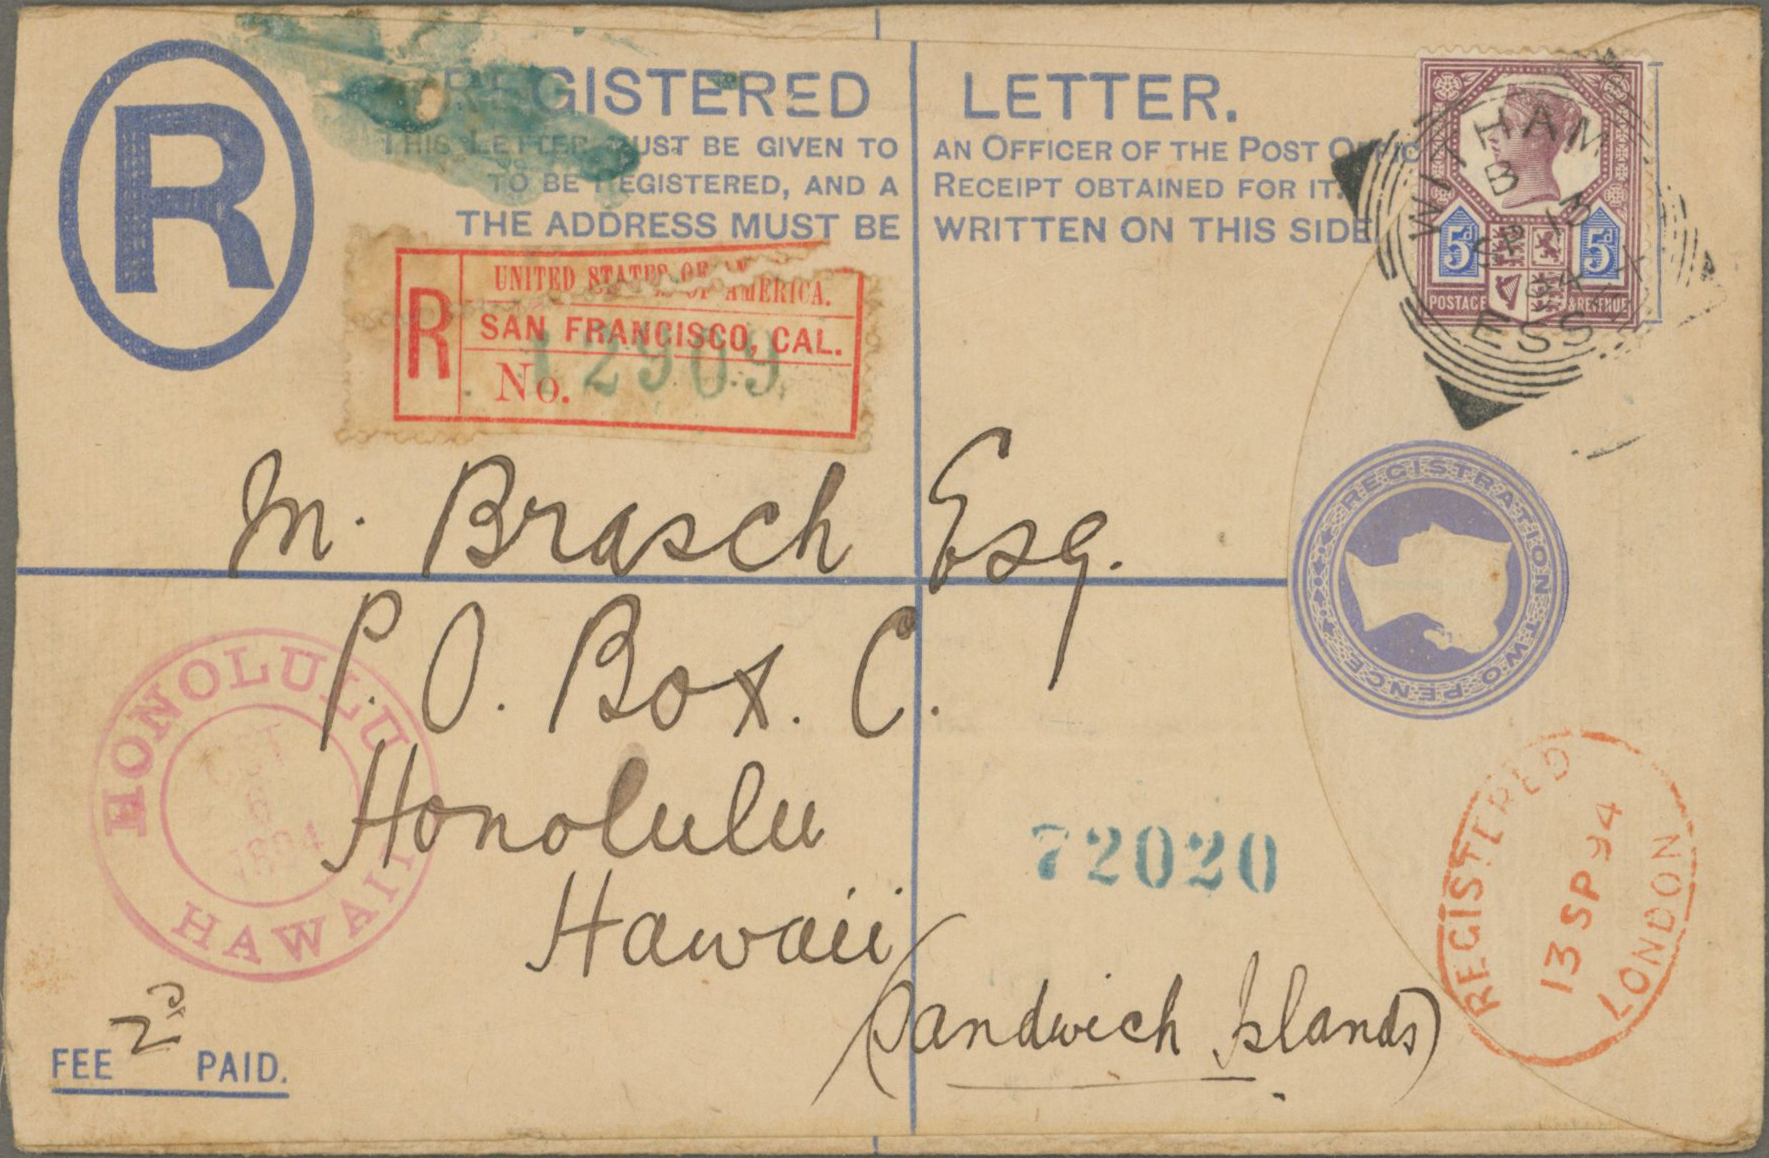 R
REGISTERED LETTER.
THIS LETTER MUST BE GIVEN TO AN OFFICER OF THE POST OFFICE
TO BE REGISTERED, AND A RECEIPT OBTAINED FOR IT.
THE ADDRESS MUST BE WRITTEN ON THIS SIDE
WITHAM
B
SP 13
94
ESSEX
5d 5d
POSTAGE & REVENUE
R
UNITED STATES OF AMERICA.
SAN FRANCISCO, CAL.
No. 12909
M. Brasch Esq.
P. O. Box. C.
Honolulu
Hawaii
(Sandwich Islands)
REGISTRATION TWO PENCE
HONOLULU
OCT
6
1894
HAWAII
72020
REGISTERED
13 SP 94
LONDON
FEE 2d PAID.